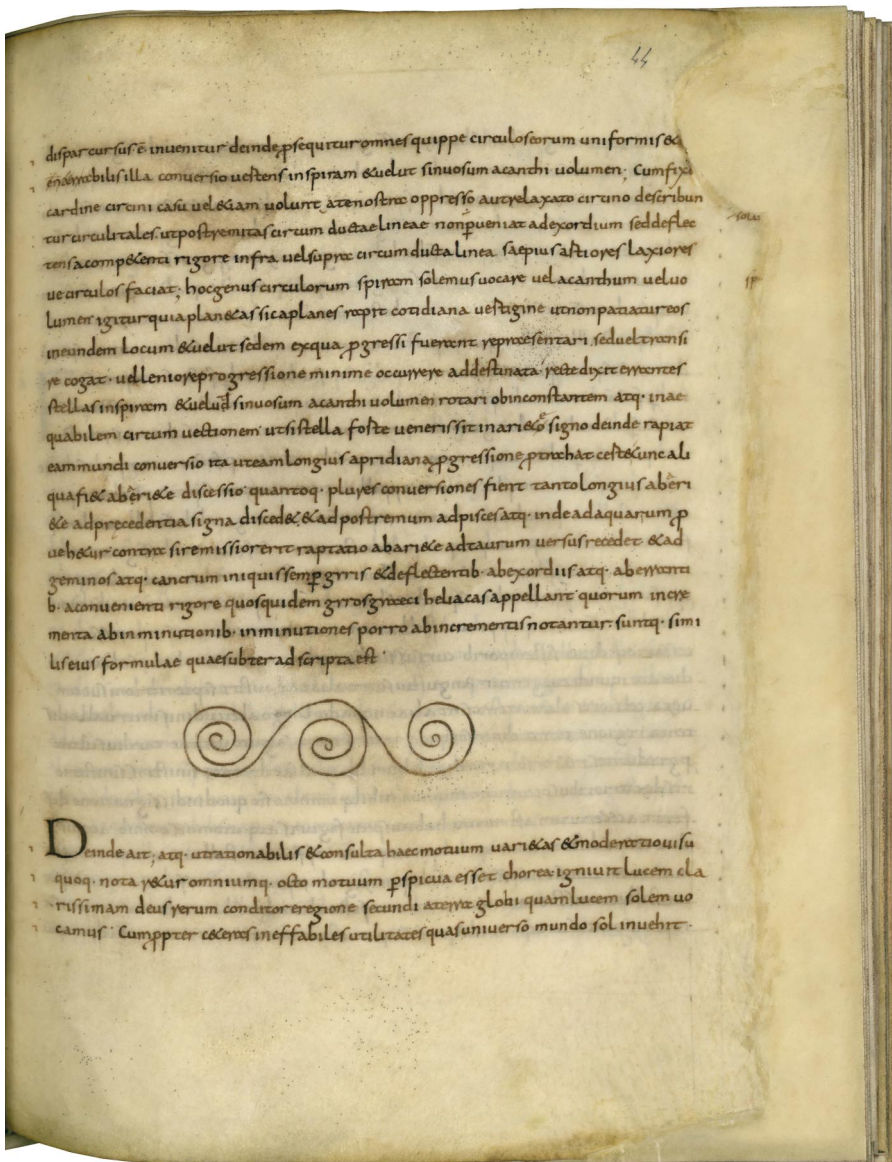 44
dispar cursus ē invenitur deinde ꝓsequitur omnes quippe circulos eorum uniformis &
enarrabilis illa conversio vertens in spiram & velut sinuosum acanthi volumen; Cum fixo
cardine circini casu vel &iam volunt ate nostra oppresso aut relaxato circino describun
tur circuli tales. ut postremitas circum ductae lineae non ꝑveniat ad exordium sed deflec
tens a comp&enti rigore infra vel supra circum ducta linea saepius artiores laxiores
ve circulos faciat; hoc genus circulorum spiram solemus vocare vel acanthum vel vo
lumen igitur quia plan&as sic aplanes rapit cotidiana vertigine ut non patiatur eos
in eundem locum & velut sedem ex qua ꝓgressi fuerant repraesentari. sed vel transi
re cogat. vel leniore progressione minime occurrere ad destinata. recte dixit errantes
stellas in spiram & velud sinuosum acanthi volumen rotari ob inconstantem atq. inae
quabilem circum vectionem ut si stella forte veneris sit in ari&e signo deinde rapiat
eam mundi conversio ita ut eam longius a pridiana ꝓgressione ꝓtrahat
qua fi& ab eri&e discessio quantoq. plures conversiones fient tanto longius ab eri
&e ad precedentia signa disced& & ad postremum ad pisces atq. inde ad aquarum ꝓ
veh&ur contra si remissior erit raptatio ab ari&e ad taurum versus recedet. & ad
geminos atq. cancrum iniquis semꝑ gyris & deflectentib. ab exordiis atq. aberranti
b. a convenienti rigore quos quidem gyros graeci heliacas appellant quorum incre
menta ab inminutionib. inminutiones porro ab incrementis notantur. suntq. simi
lis eius formulae quae subter ad scripta est
Deinde ait; atq. ut rationabilis & consulta haec motuum vari&as & moderatio visu
quoq. nota r&ur omniumq. octo motuum ꝑspicua esset chorea. igniuit lucem cla
rissimam deus rerum conditor e regione secundi a terra globi quam lucem solem vo
camus. Cum ꝓpter c&eras ineffabiles utilitates quas universo mundo sol invehit.